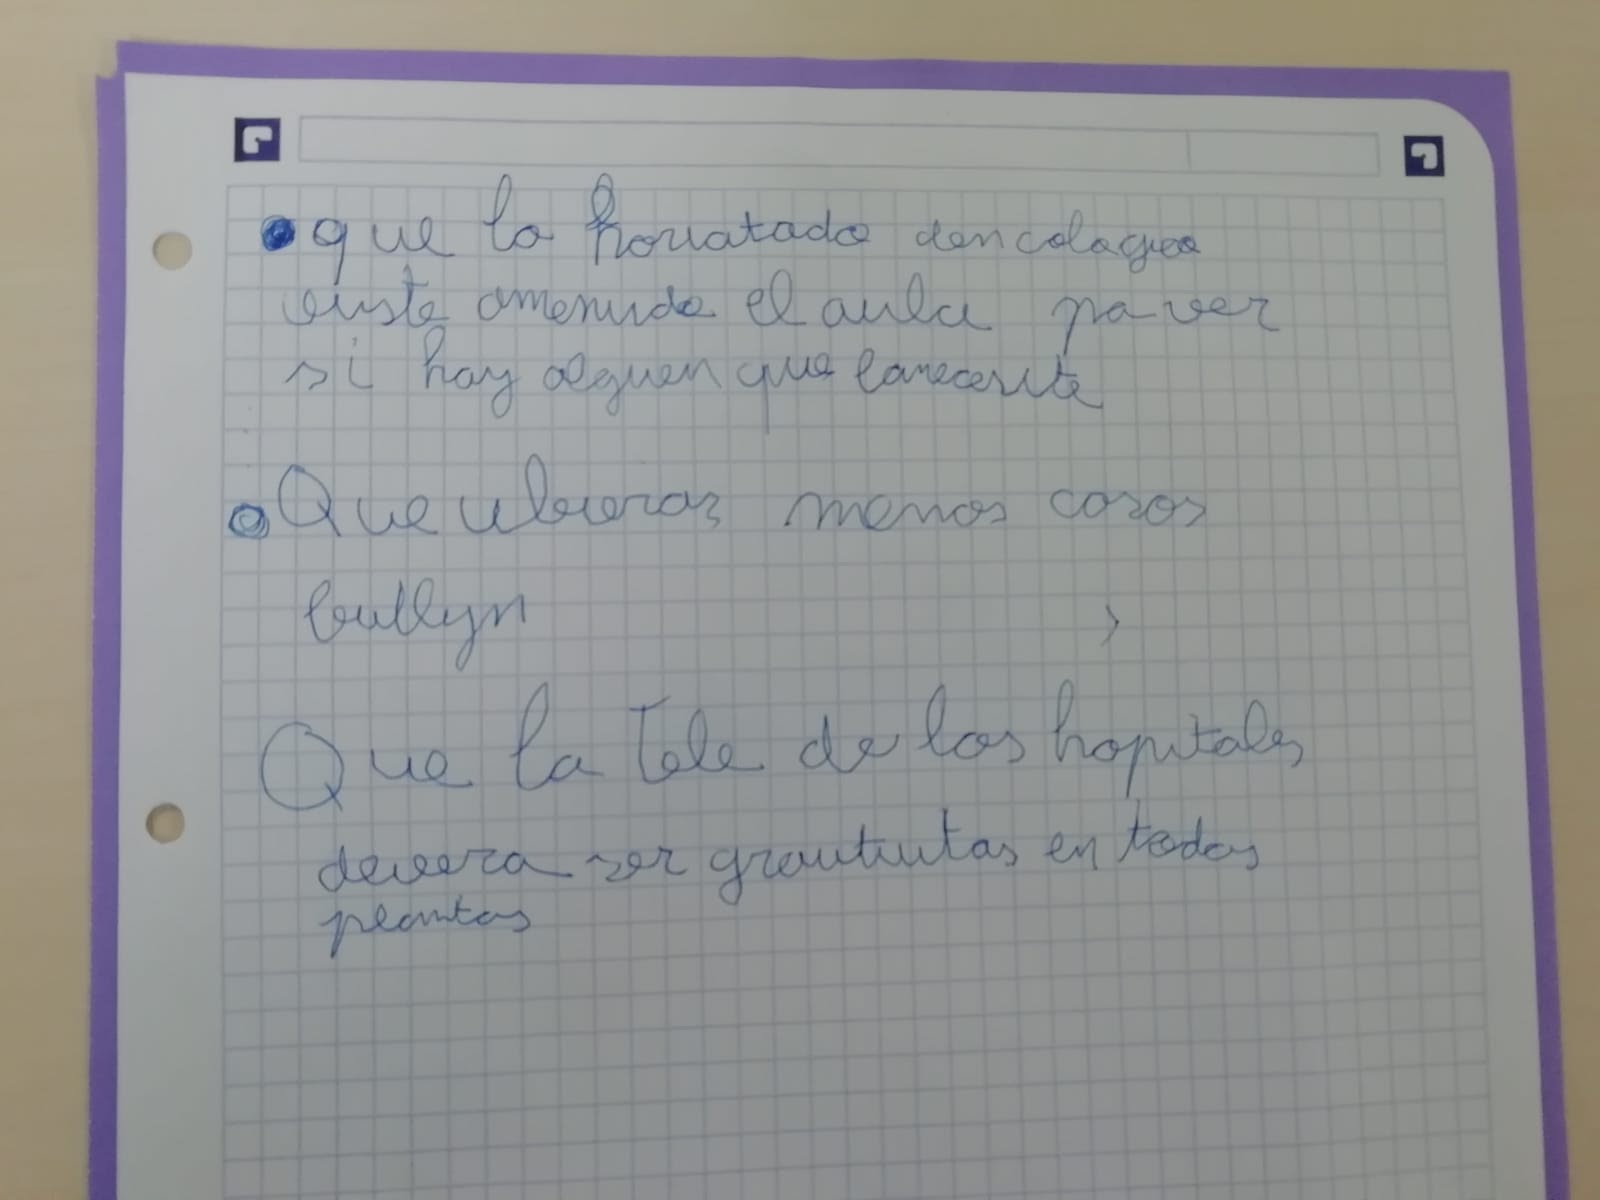 que la
amenudo el aula pa ver
si hay alguen que lanecesite
Que ubieras menos casos
bullyn
Que la Tele de los hopitales
devera ser grautuitas en todas
plantas